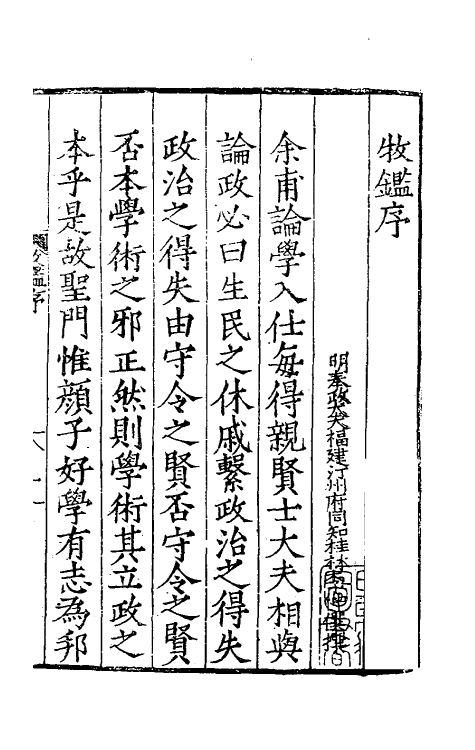 牧鑑序
明奉政大夫福建汀州府同知桂林
余甫論學入仕每得親賢士大夫相與
論政必曰生民之休戚繫政治之得失
政治之得失由守令之賢否守令之賢
否本學術之邪正然則學術其立政之
本乎是故聖門惟顔子好學有志為邦
牧鑑序